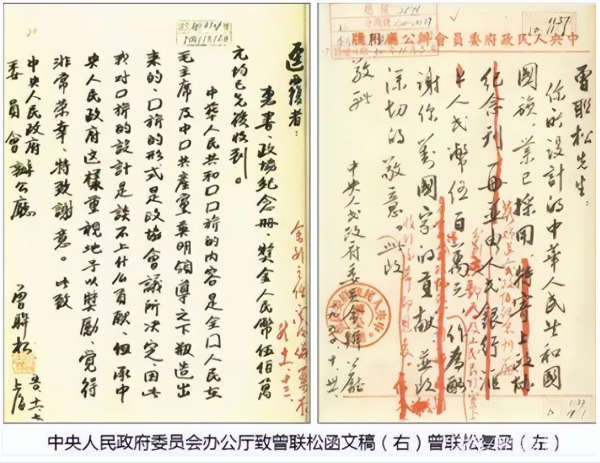 中央人民政府委員會辦公廳用牋
曾联松先生：
你的设计的中華人民共和國
國旗，業已採用。特寄上政协
纪念刊一册，並由人民銀行汇
上人民幣伍百萬元，作為酬
謝你對國家的貢献，並致
深切的敬意。此致
敬礼
中央人民政府委员会辦公廳
逕覆者：
惠書政協紀念冊獎金人民幣伍佰萬
元均已先後收到。
中華人民共和囗囗旂的内容是全囗人民在
毛主席及中囗共產黨英明領導之下創造出
來的，囗旂的形式是政協會議所決定，因此
我对囗旂的設計是談不上什么貢献，但承中
央人民政府這樣重視地予以獎勵，覺得
非常榮幸，特致謝意。此致
中央人民政府
委員會辦公廳
曾聯松
中央人民政府委员会办公厅致曾联松函文稿（右）曾联松复函（左）